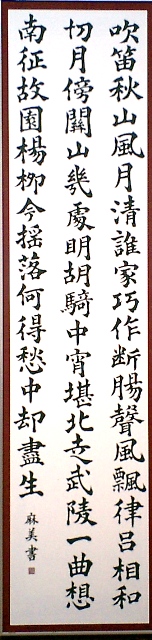 吹笛秋山風月清誰家巧作断腸聲風飄律呂相和
切月傍關山幾處明胡騎中宵堪北走武陵一曲想
南征故園楊柳今揺落何得愁中却盡生
麻美書